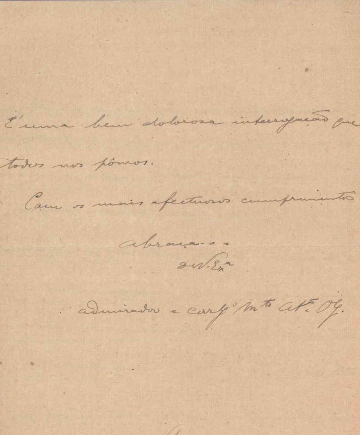 É uma bem dolorosa interrogação que
todos nos pômos.
Com os mais afectuosos cumprimentos
abraça-o o
de V. Exª
admirador e Mto Atº